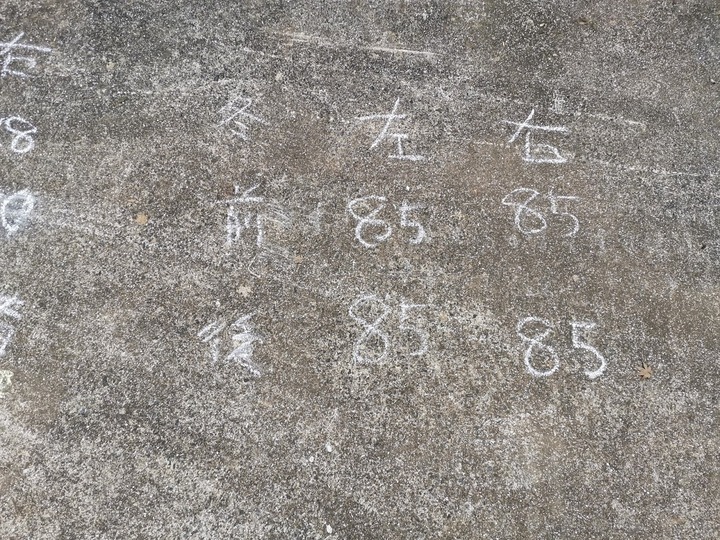 冬 左 右
前 85 85
後 85 85
右
8
8